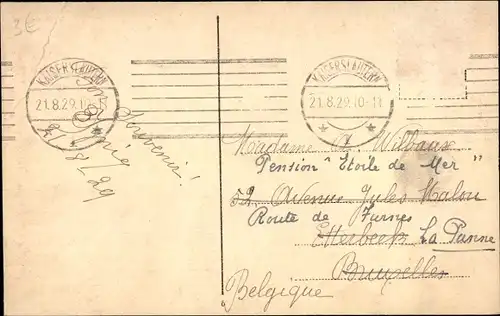 3€
KAISERSLAUTERN
21.8.29.10-11
KAISERSLAUTERN
21.8.29.10-11
Bon
Souvenir!
21/8-29
Madame A. Wilbaux
Pension "Etoile de Mer"
52 Avenue Jules Malou
Route de Furnes
Etterbeek La Panne
Bruxelles
Belgique